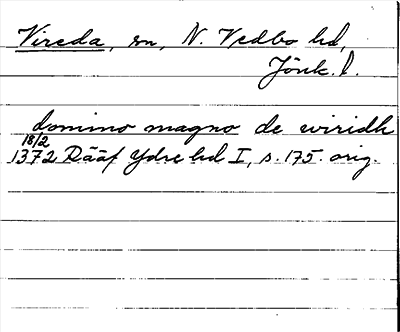 Vireda, sn, N. Vedbo hd,
Jönk. l.
domino magno de wiridh
18/2
1372 Rääf Ydre hd I, s. 175. orig.